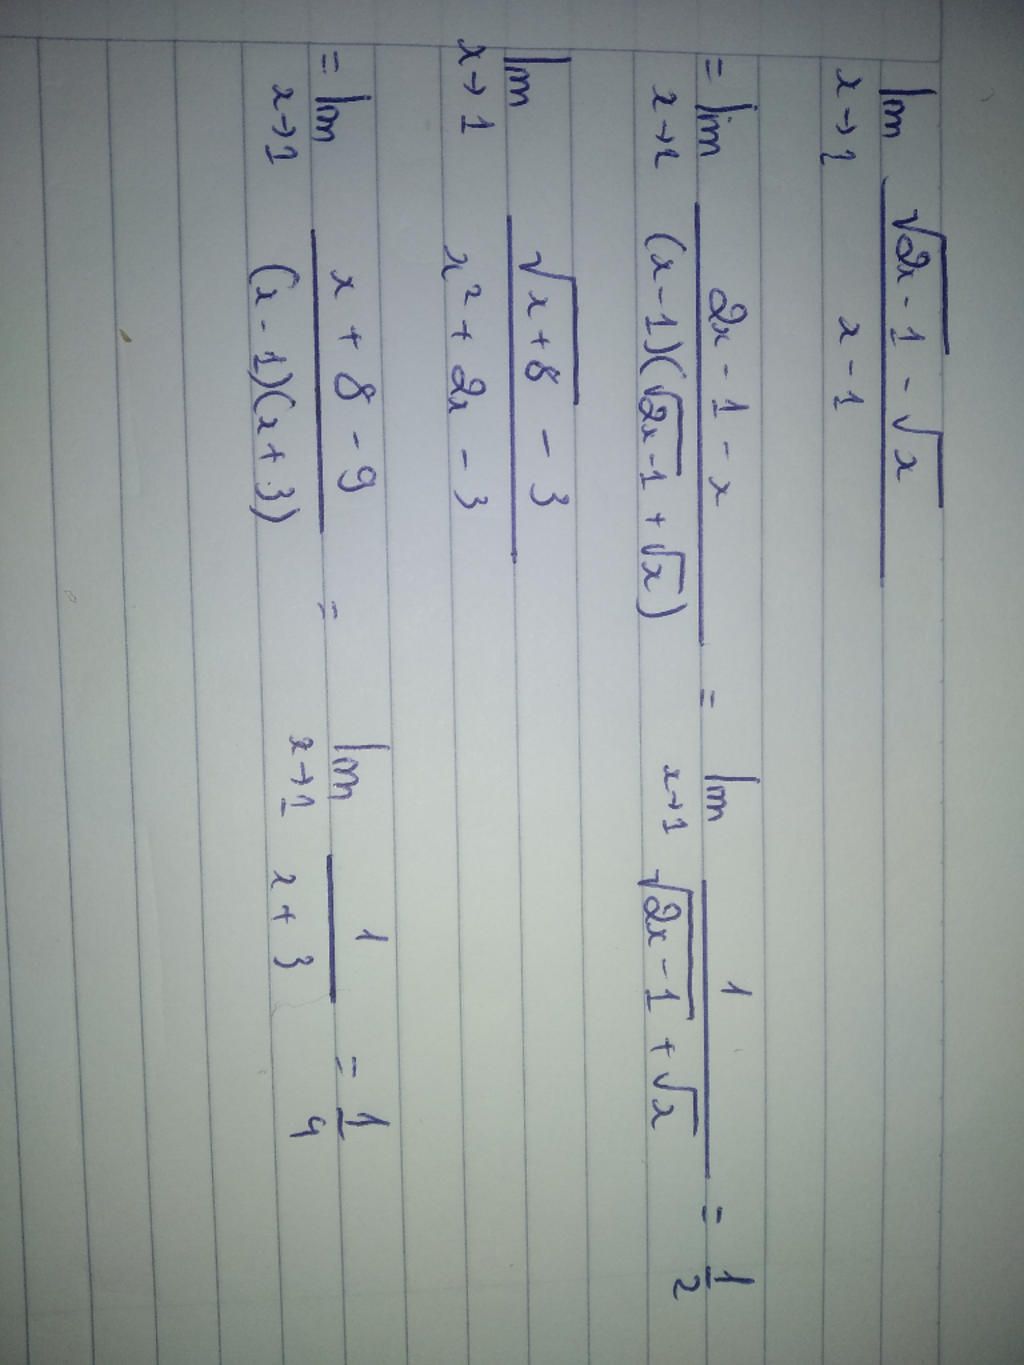 lim x→1 (√(2x-1) - √x)/(x-1)
= lim x→1 (2x-1-x)/((x-1)(√(2x-1) + √x)) = lim x→1 1/(√(2x-1) + √x) = 1/2
lim x→1 (√(x+8) - 3)/(x² + 2x - 3)
= lim x→1 (x+8-9)/((x-1)(x+3)) = lim x→1 1/(x+3) = 1/4